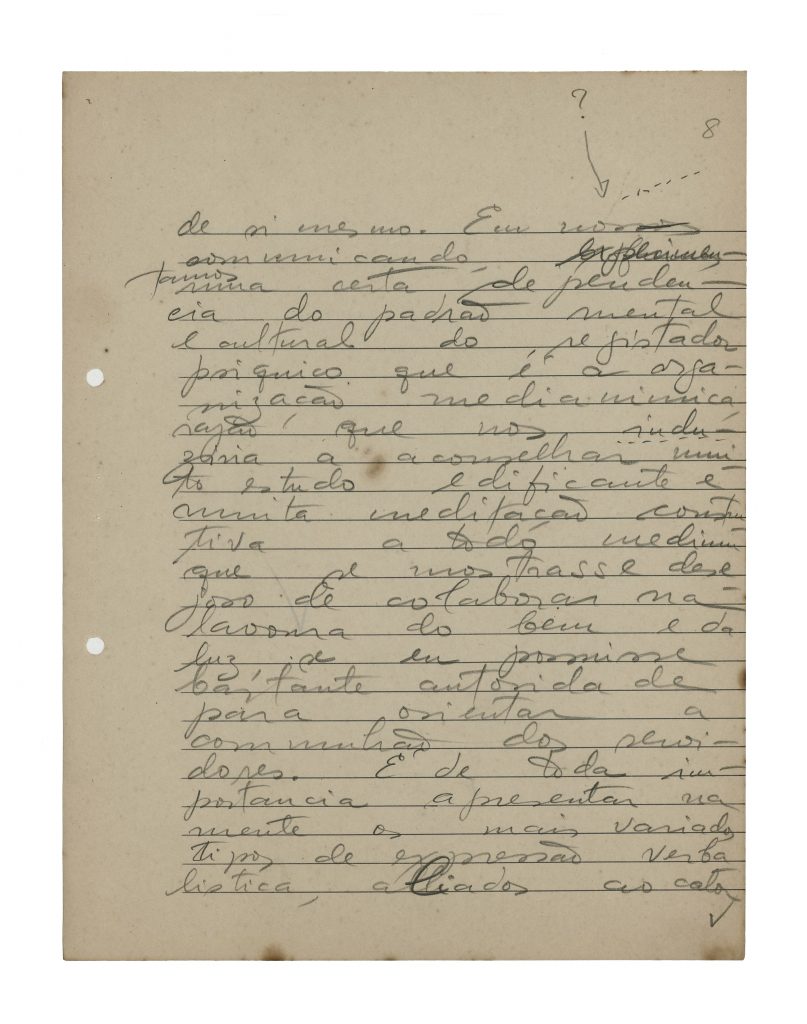 ?
8
de si mesmo. Em nossos
comunicando, experimen-
tamos
uma certa dependen-
cia do padrão mental
e cultural do registador
psiquico que é a orga-
nização medianimica,
razão que nos indu-
ziria a aconselhar mui
to estudo edificante e
muita meditação constru
tiva a todo medium
que se mostrasse dese
joso de colaborar na
lavoura do bem e da
luz se eu possuisse
bastante autoridade
para orientar a
comunhão dos servi-
dores. É de toda im-
portancia apresentar na
mente os mais variados
tipos de expressão verba
listica, alliados ao cato